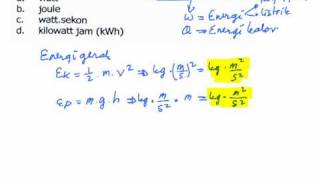 b. joule
c. watt.sekon
d. kilowatt jam (kWh)
W = Energi listrik
Q = Energi kalor
Energi gerak
Ek = 1/2 . m . v² ⇒ kg . (m/s)² = kg . m²/s²
Ep = m . g . h ⇒ kg . m/s² . m = kg . m²/s²